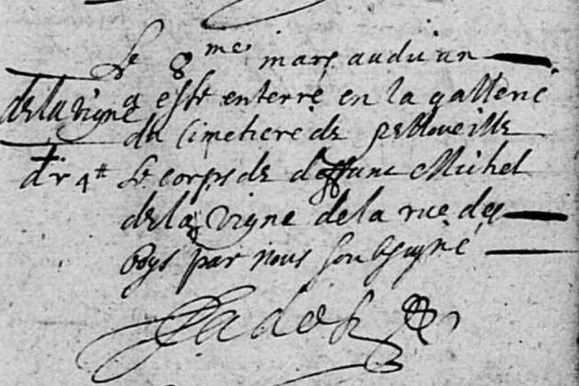 Le 8me mars audit an
de la vigne
a esté enterré en la gallerie
du cimetiere de
dr 4tt
Le corps de deffunc Michel
de la Vigne de la rue des
par nous soubsigné